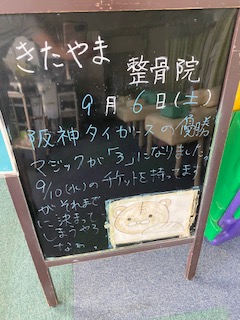 きたやま
整骨院
9月6日(土)
阪神タイガースの優勝
マジックが「3」になりました。
9/10(水)のチケットを持ってます
がそれまで
に決まって
しまうやろ
なぁ。